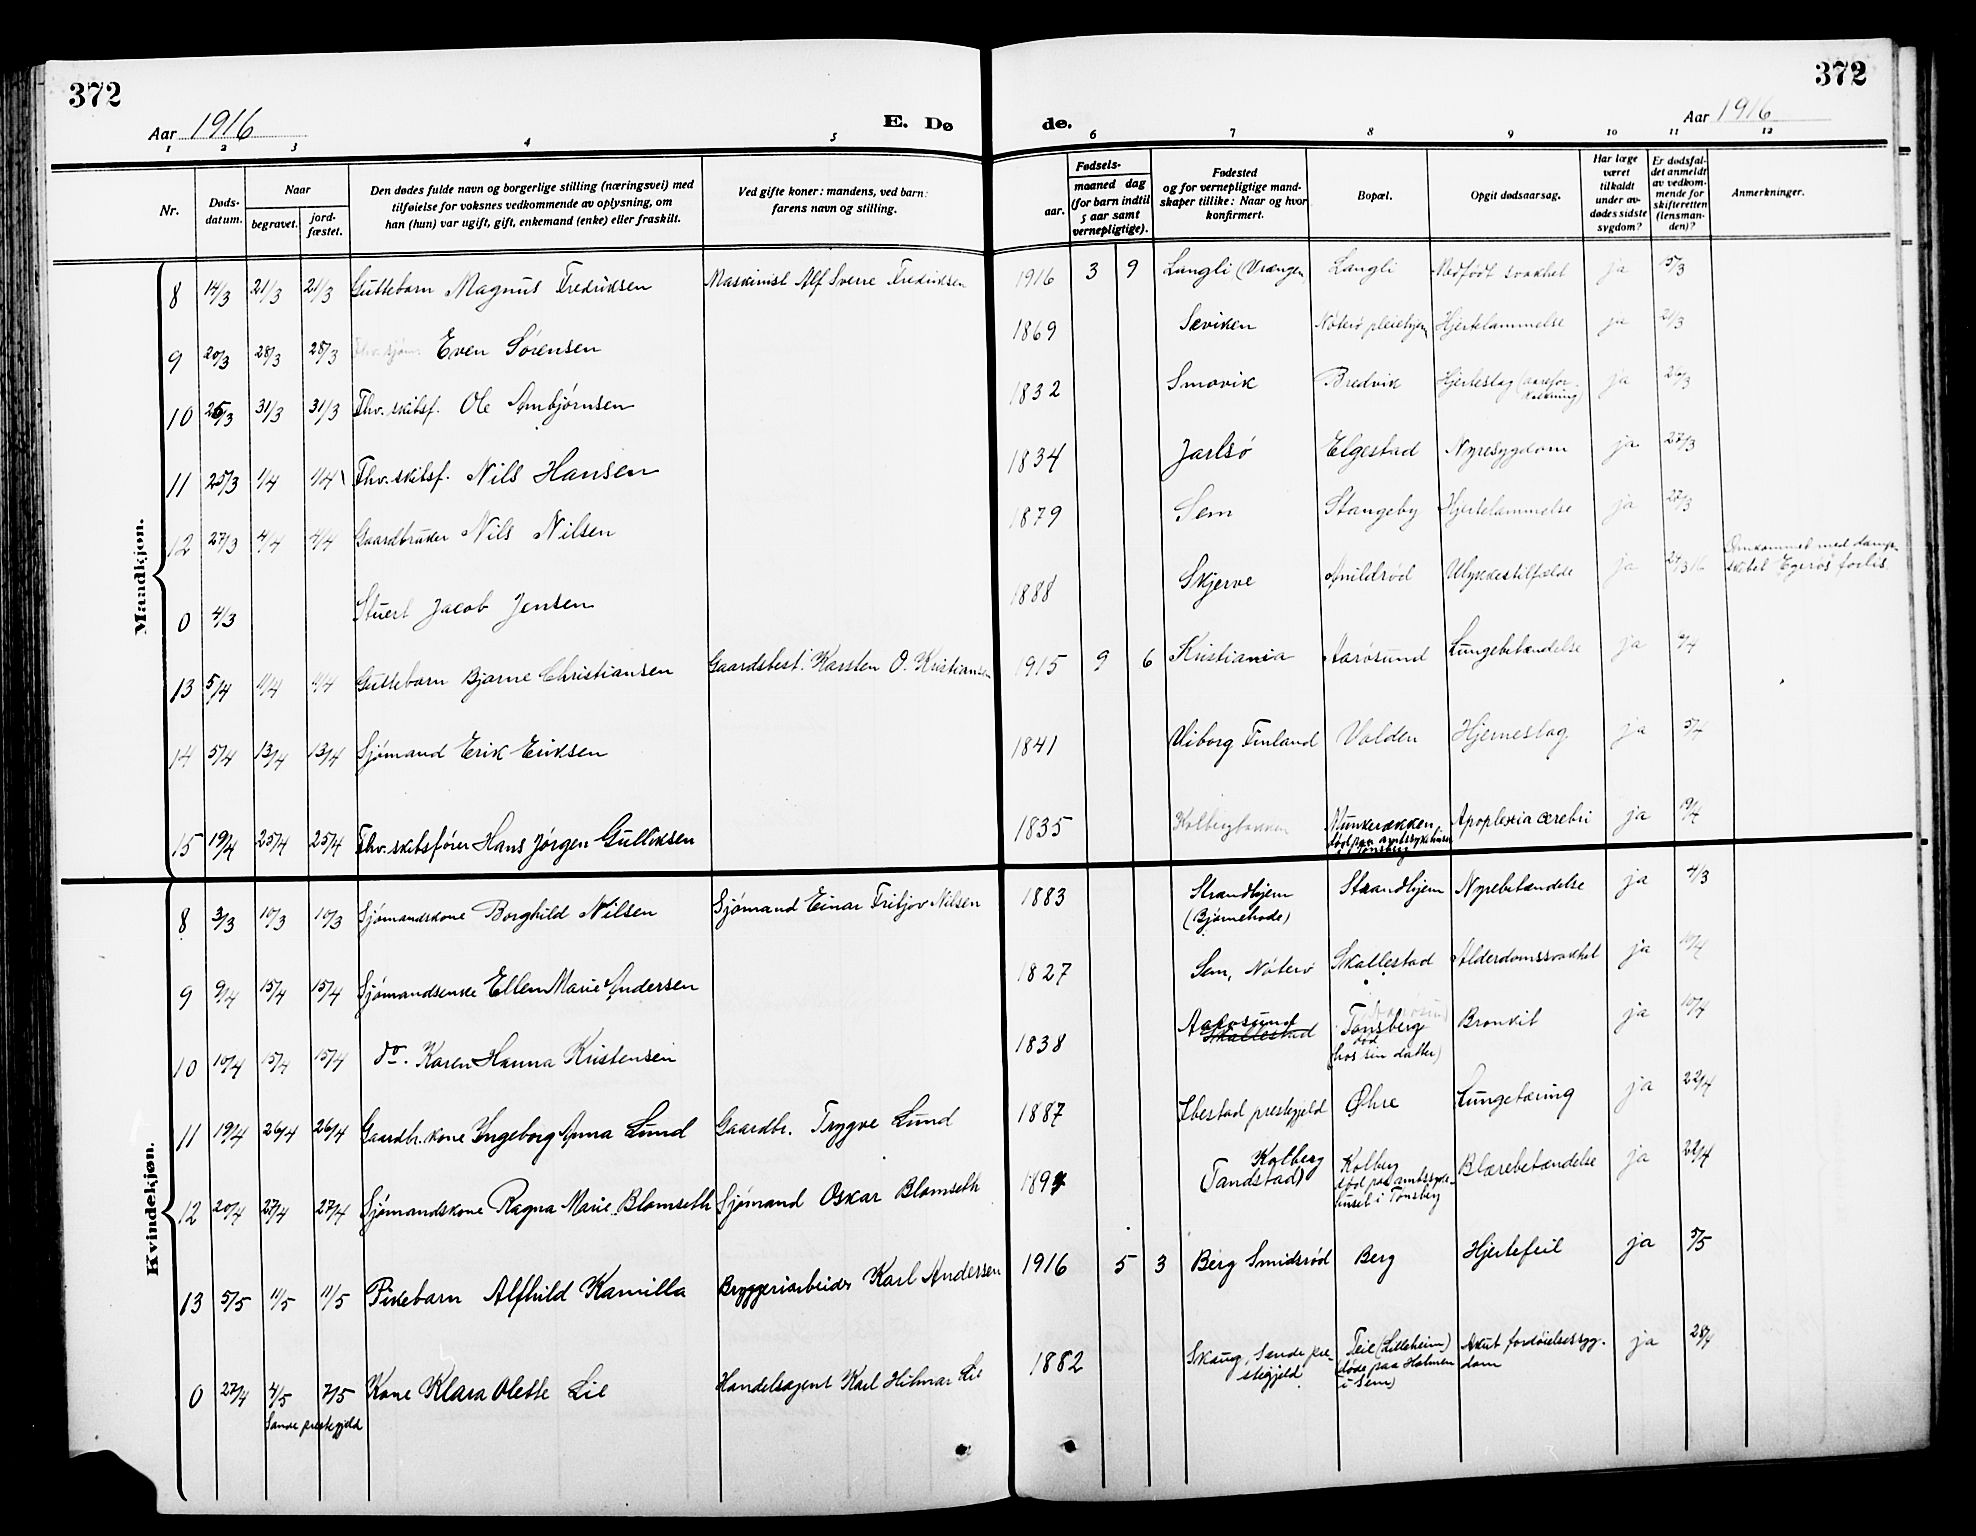 372
372
Aar 1916
E. Dø
de.
Aar 1916
1 2 3 4 5 6 7 8 9 10 11 12
Nr.
Døds-
datum.
Naar
begravet.
jord-
fæstet.
Den dødes fulde navn og borgerlige stilling (næringsvei) med
tilføielse for voksnes vedkommende av oplysning, om
han (hun) var ugift, gift, enkemand (enke) eller fraskilt.
Ved gifte koner: mandens, ved barn:
farens navn og stilling.
Fødsels-
aar.
maaned dag
(for barn indtil
5 aar samt
vernepligtige).
Fødested
og for vernepligtige mand-
skaper tillike: Naar og hvor
konfirmert.
Bopæl.
Opgit dødsaarsag.
Har læge
været
tilkaldt
under av-
dødes sidste
sygdom?
Er dødsfal-
det anmeldt
av vedkom-
mende for
skifteretten
(lensman-
den)?
Anmerkninger.
Mandkjøn.
8 14/3 21/3 21/3 Guttebarn Magnus Fredriksen Maskinist Alf Sverre Fredriksen 1916 3 9 Langli (Vrængen) Langli Medfødt svakhet ja 15/3
9 20/3 28/3 28/3 Fhv. sjøm. Even Sørensen 1869 Sæviken Nøterø pleiehjem Hjertelammelse ja 21/3
10 25/3 31/3 31/3 Fhv. skibsf. Ole Ambjørnsen 1832 Smovik Bredvik Hjerteslag (aarefor-
kalkning) ja
11 25/3 1/4 1/4 Fhv. skibsf. Nils Hansen 1834 Jarlsø Elgestad Nyresygdom ja 27/3
12 27/3 4/4 4/4 Gaardbruker Nils Nilsen 1879 Sem Stangeby Hjertelammelse ja 28/3
0 4/3 Stuert Jacob Jensen 1888 Skjerve Anildrød Ulykkestilfælde ja 29/3 16 Omkommet med damp-
skibet Egerøs forlis
13 5/4 11/4 11/4 Guttebarn Bjarne Christiansen Gaardsbest. Karsten O. Kristiansen 1915 9 6 Kristiania Aarøsund Lungebetændelse ja
14 5/4 13/4 13/4 Sjømand Erik Eriksen 1841 Viborg Finland Volden Hjerneslag ja 5/4
15 19/4 25/4 25/4 Fhv. skibsfører Hans Jørgen Gulliksen 1835 Kolbergbakken Munkerækken
død paa amtssykehuset
i Tønsberg Apoplexia cerebri ja 19/4
Kvindekjøn.
8 3/3 10/3 10/3 Sjømandskone Borghild Nilsen Sjømand Einar Fritjov Nilsen 1883 Strandhjem
(Bjørnehode) Strandhjem Nyrebetændelse ja 4/3
9 9/4 15/4 15/4 Sjømandsenke Ellen Marie Andersen 1827 Sem, Nøterø Skallestad Alderdomssvakhet ja 10/4
10 10/4 15/4 15/4 do. Karen Hanna Kristensen 1838 Aarøsund
Skallestad Tønsberg
død
(hos sin datter) Bronkit ja 10/4
11 19/4 26/4 26/4 Gaardbr. kone Yngeborg Anna Lund Gaardbr. Trygve Lund 1887 Ibestad prestegjeld Øhre Lungetæring ja 22/4
12 20/4 27/4 27/4 Sjømandskone Ragna Marie Blomseth Sjømand Oskar Blomseth Kolberg
(Tandstad) Kolberg
død paa amtssyke-
huset i Tønsberg Blærebetændelse ja 22/4
13 5/5 11/5 11/5 Pikebarn Alfhild Kamilla Bryggeriarbeider Karl Andersen 1916 5 3 Berg Smidsrød Berg Hjertefeil ja 5/5
0 27/4 4/5 7/5 Kone Klara Olette Lie Handelsagent Karl Hilmar Lie 1882 Skaug, Sande pre-
stegjeld Teie (Lilleheim)
(døde paa Holmen
i Sem) Akut fordøielsessyg-
dom ja 28/4
Sande prestegjeld